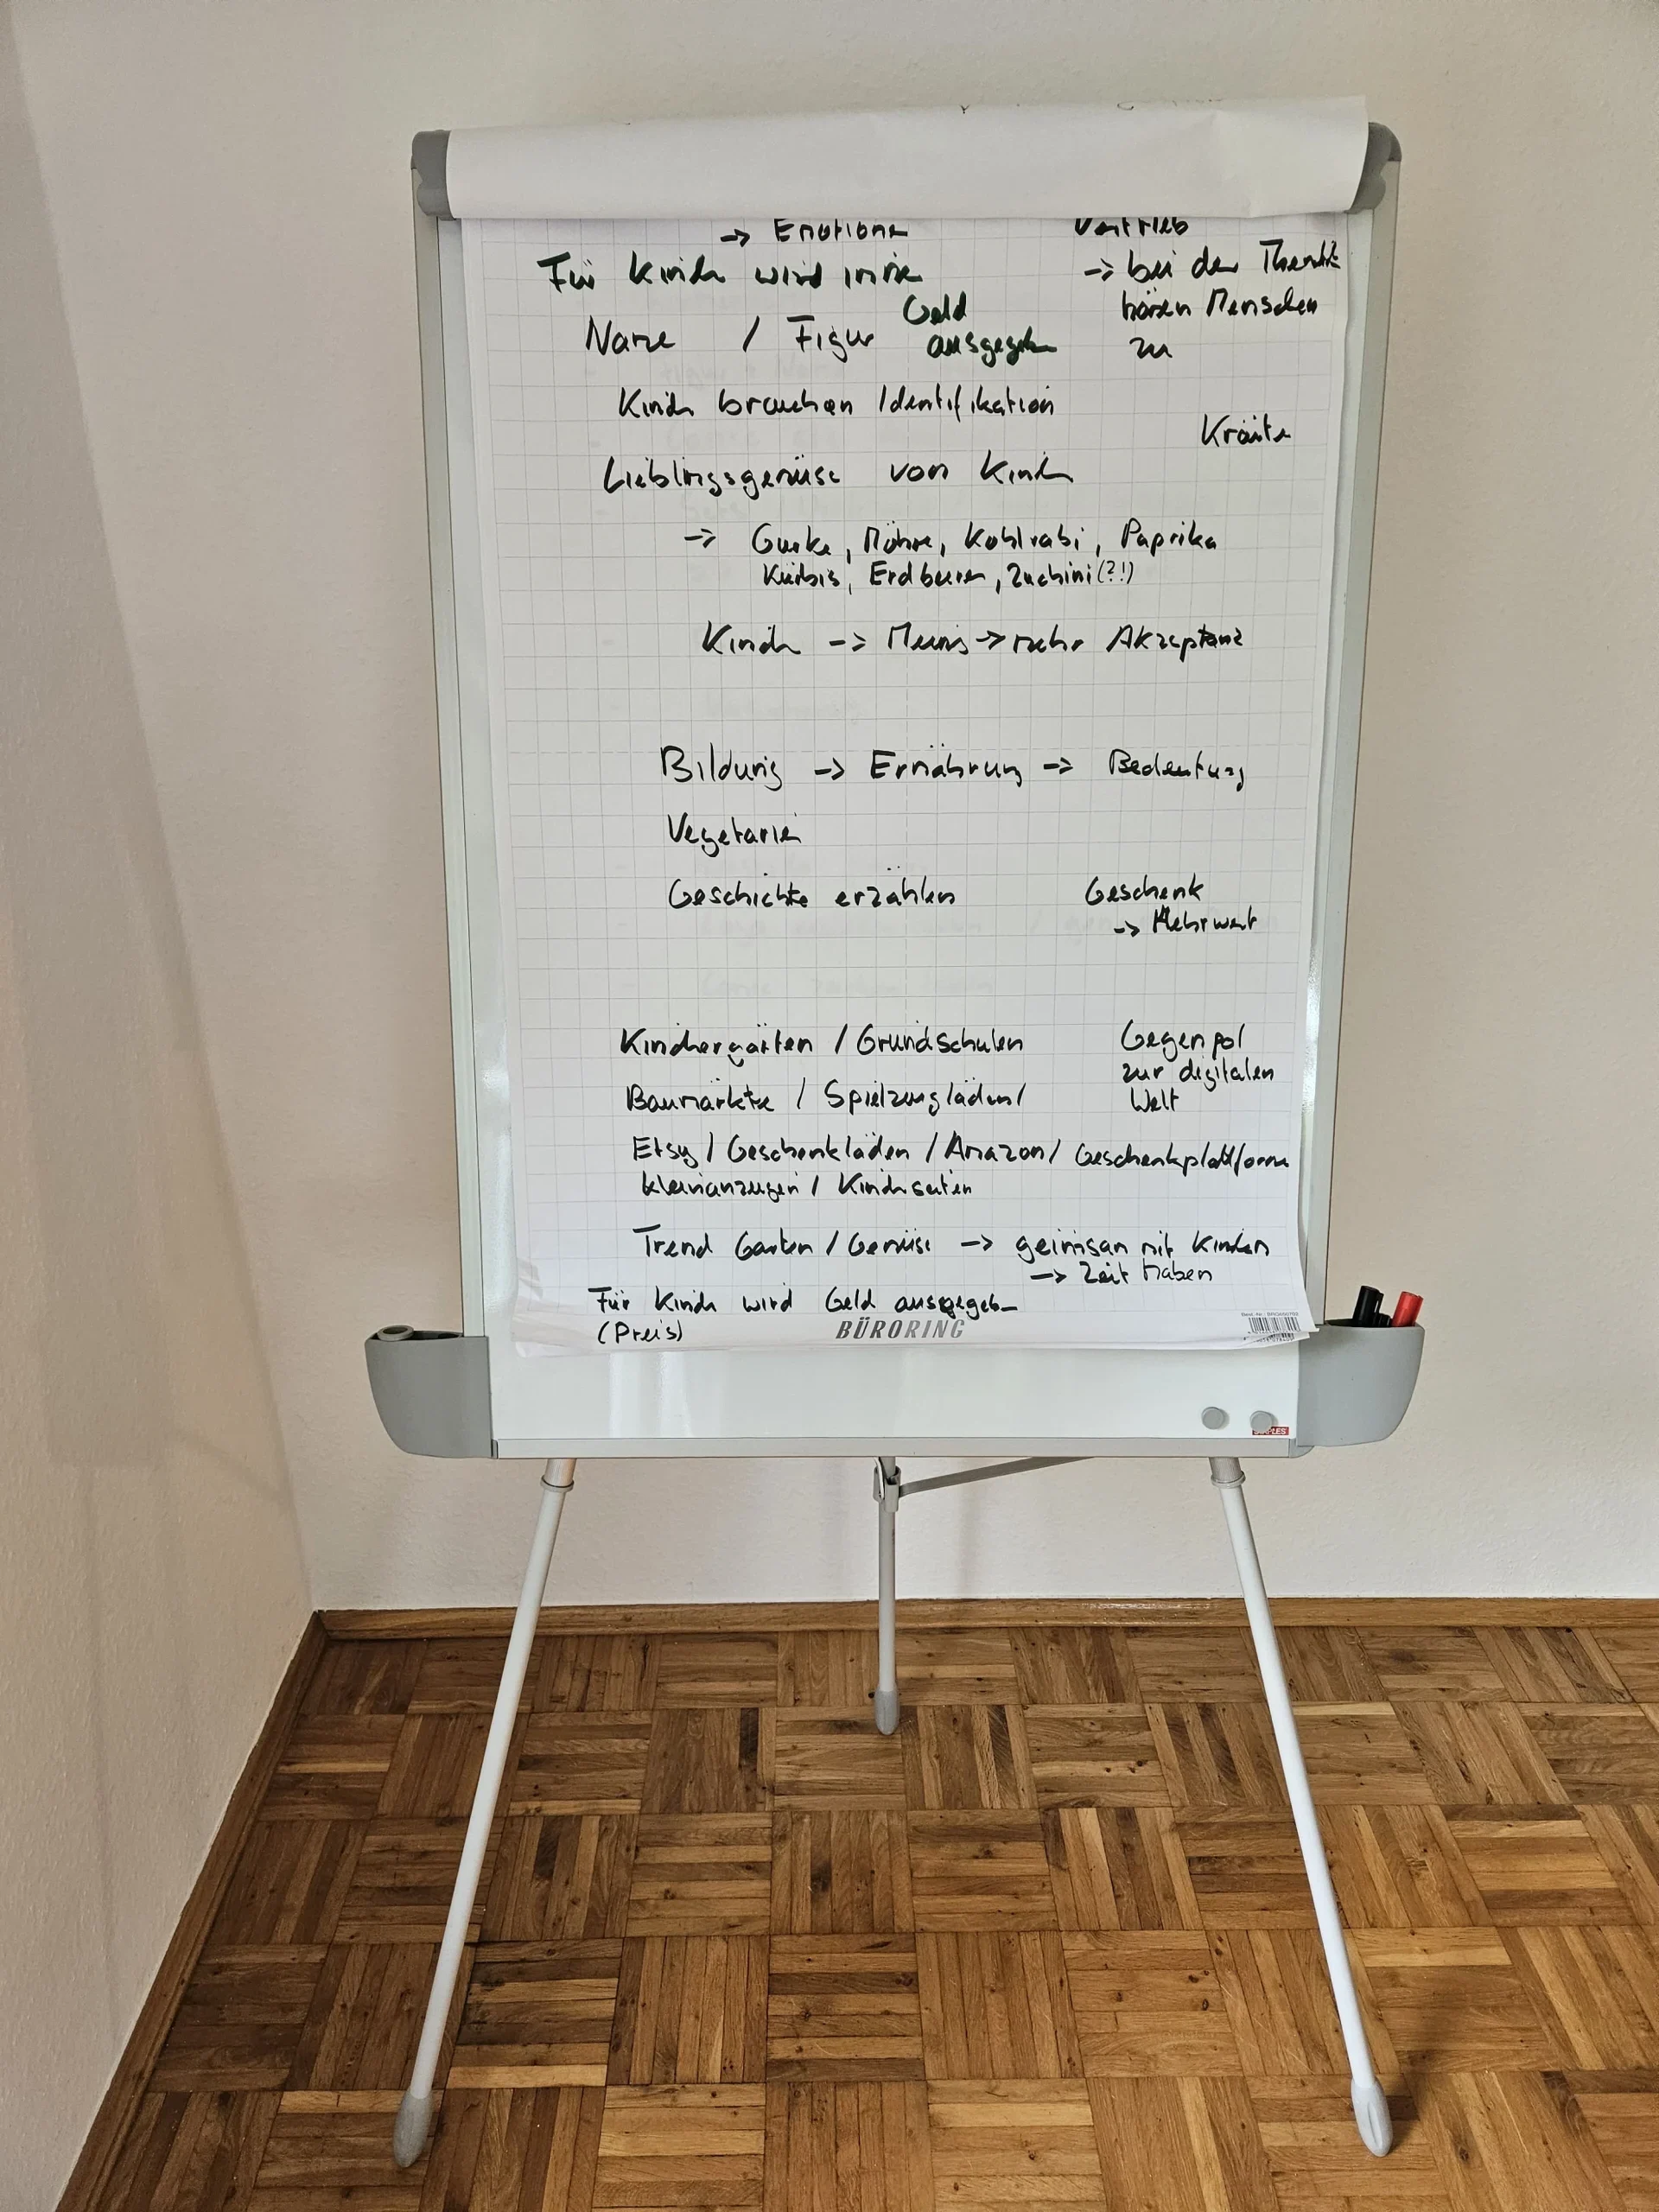 → Emotionen
Vertrieb
Für Kinder wird immer
Geld
ausgegeben
→ bei der Thematik
hören Menschen
zu
Name / Figur
Kinder brauchen Identifikation
Kräuter
Lieblingsgemüse von Kindern
→ Gurke, Möhre, Kohlrabi, Paprika
Kürbis, Erdbeeren, Zuchini (?!)
Kinder → → mehr Akzeptanz
Bildung → Ernährung → Bedeutung
Vegetarier
Geschichte erzählen
Geschenk
→ Mehrwert
Kindergärten / Grundschulen
Gegenpol
zur digitalen
Welt
Baumärkte / Spielzeugläden /
Etsy / Geschenkläden / Amazon / Geschenkplattformen
Kleinanzeigen / Kinderseiten
Trend Garten / Gemüse → mit Kindern
→ Zeit haben
Für Kinder wird Geld ausgegeben
(Preis)
BÜRORING